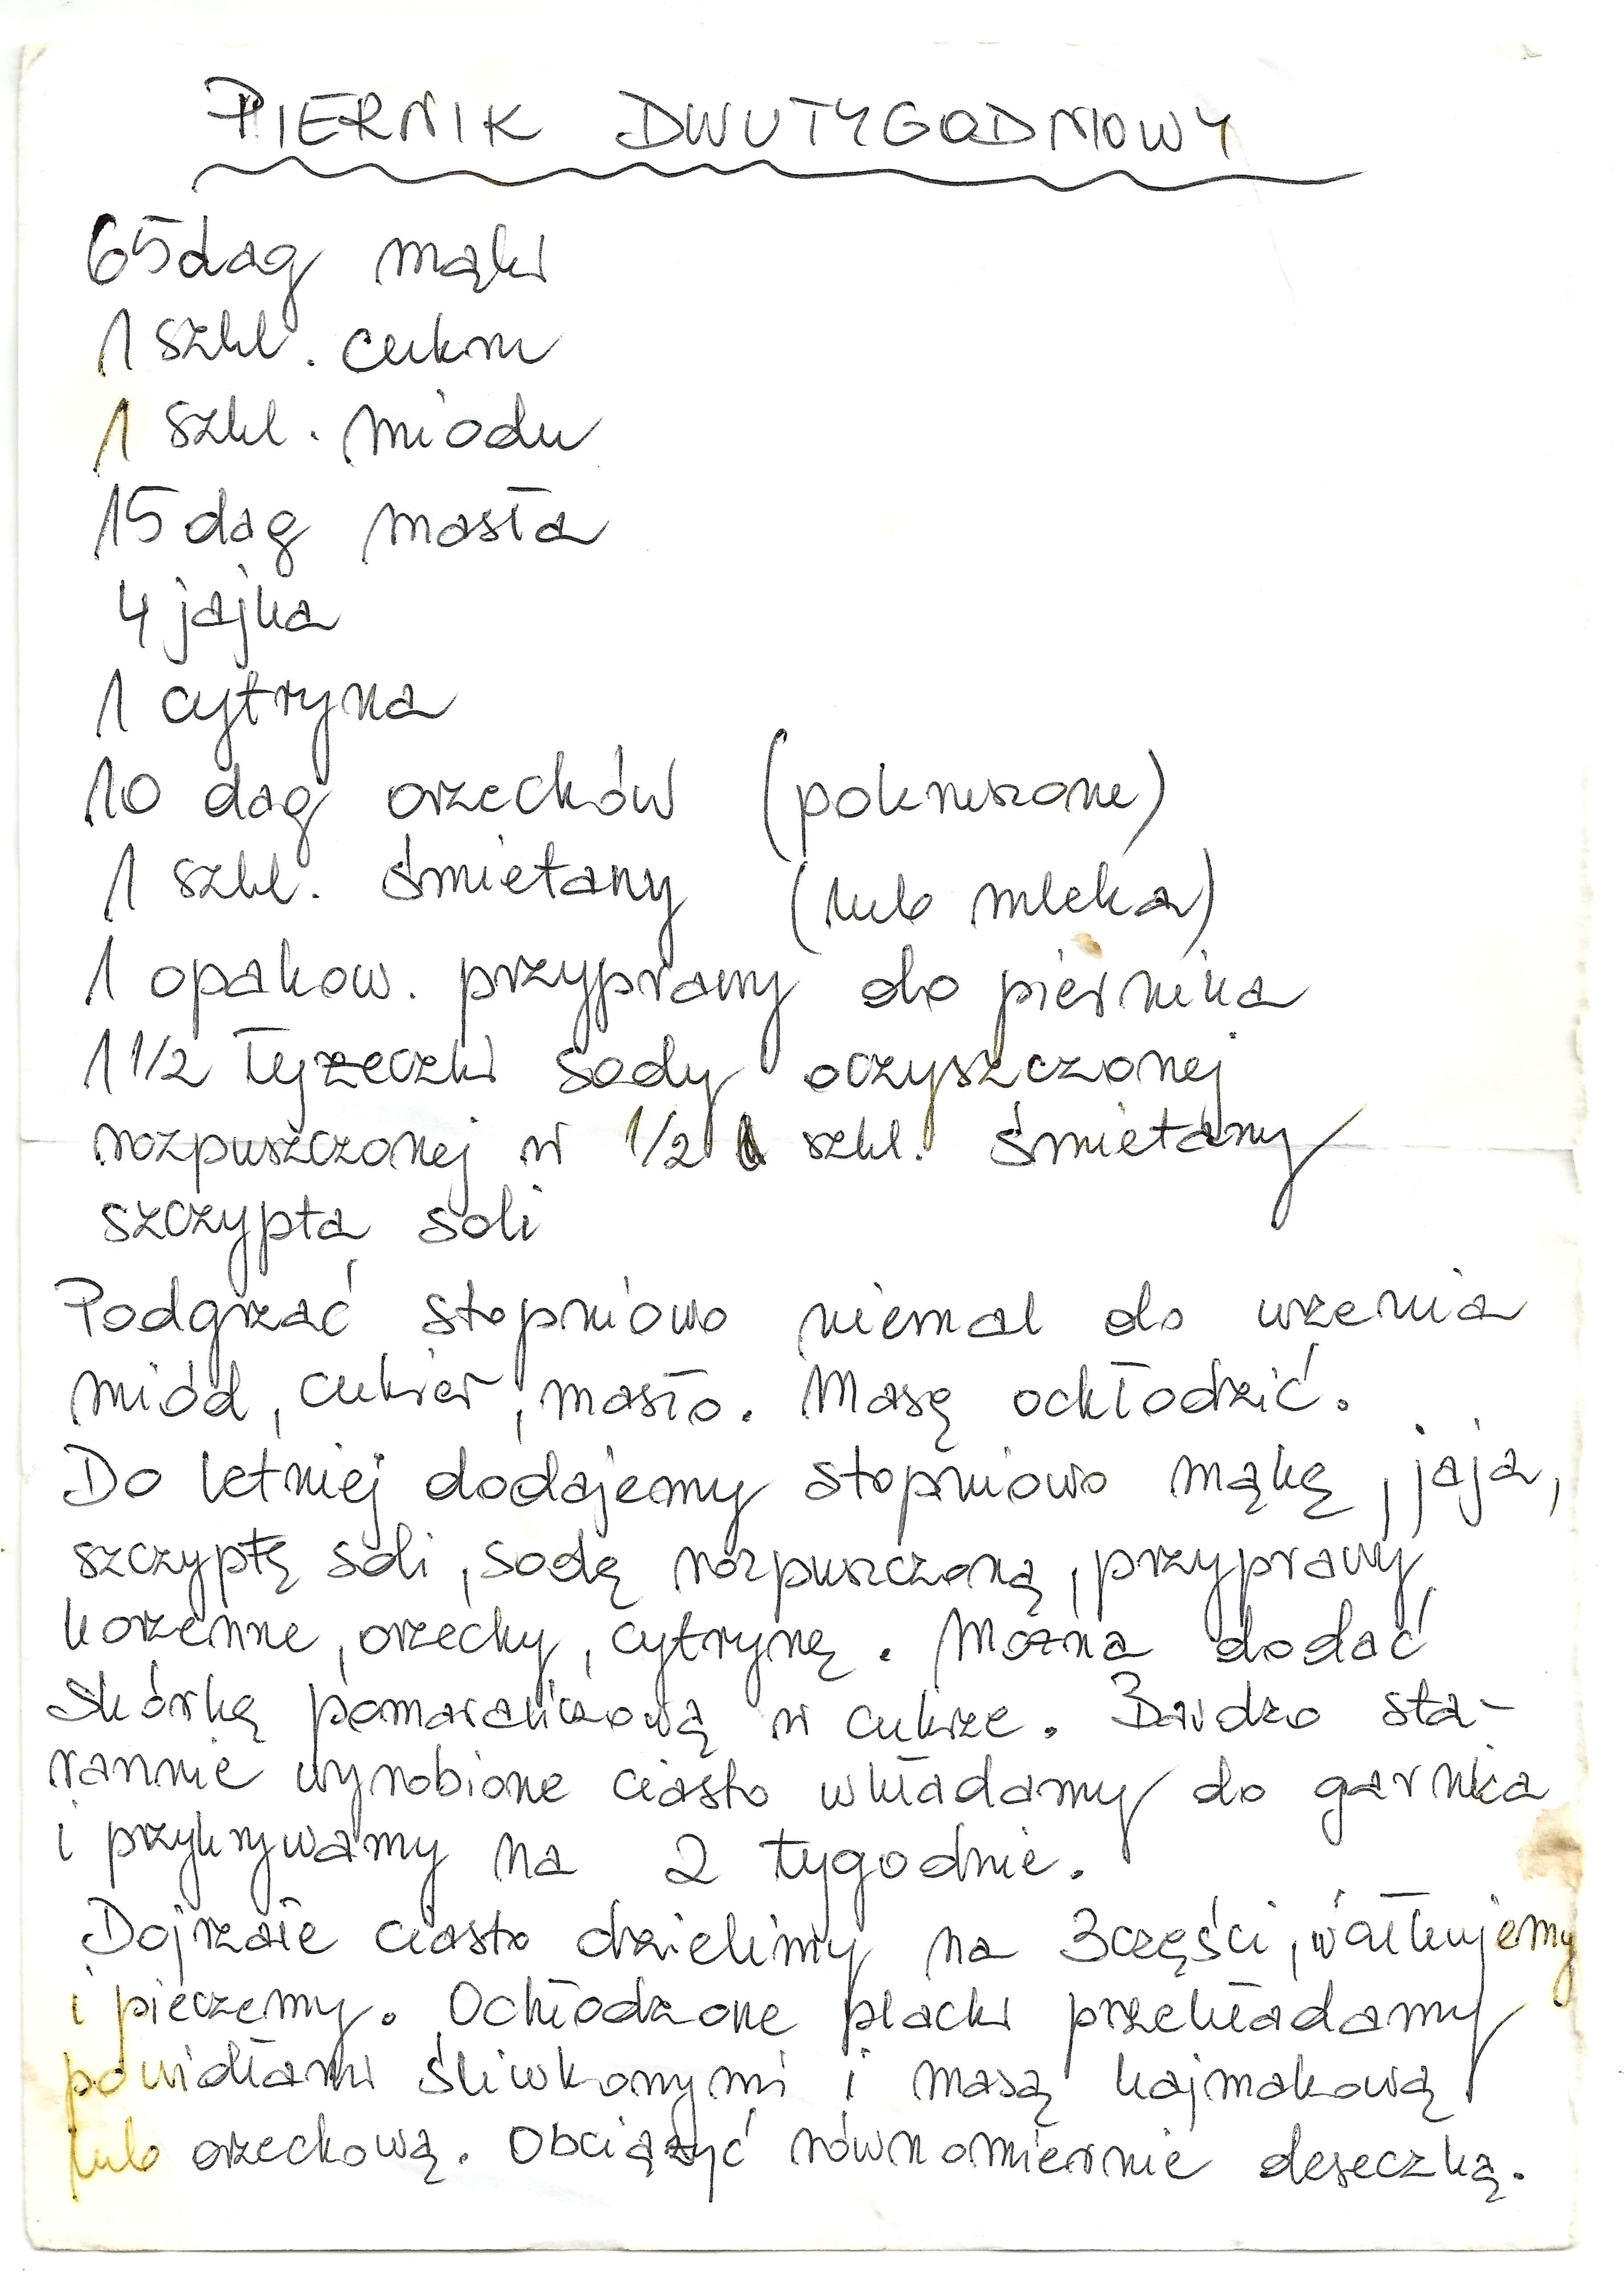 PIERNIK DWUTYGODNIOWY
65dag mąki
1 szkl. cukru
1 szkl. miodu
15 dag masła
4 jajka
1 cytryna
10 dag orzechów (pokruszone)
1 szkl. śmietany (lub mleka)
1 opakow. przyprawy do piernika
1 1/2 łyżeczki sody oczyszczonej
rozpuszczonej w 1/2 szkl. śmietany
szczypta soli
Podgrzać stopniowo niemal do wrzenia
miód, cukier, masło. Masę ochłodzić.
Do letniej dodajemy stopniowo mąkę, jaja,
szczyptę soli, sodę rozpuszczoną, przyprawy
korzenne, orzechy, cytrynę. Można dodać
skórkę pomarańczową w cukrze. Bardzo sta-
rannie wyrobione ciasto wkładamy do garnka
i przykrywamy na 2 tygodnie.
Dojrzałe ciasto dzielimy na 3części, wałkujemy
i pieczemy. Ochłodzone placki przekładamy
powidłami śliwkowymi i masą kajmakową
lub orzechową. Obciążyć równomiernie deseczką.